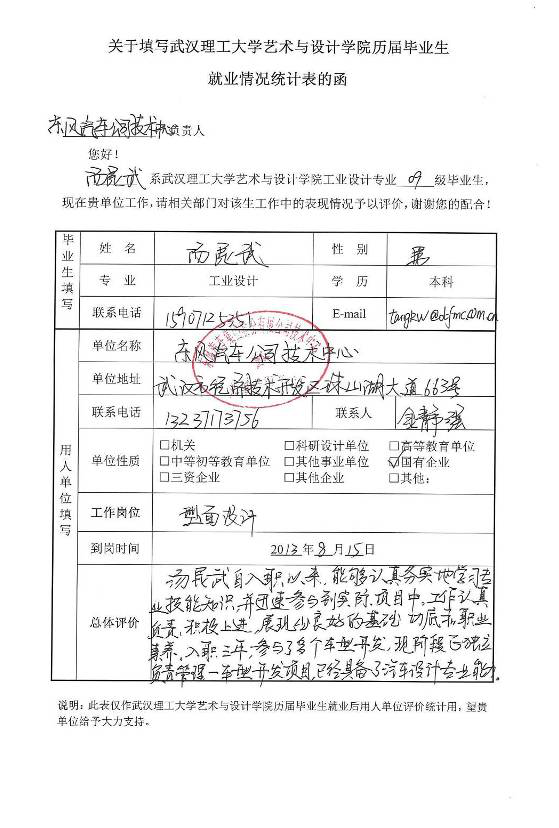 关于填写武汉理工大学艺术与设计学院历届毕业生
就业情况统计表的函
东风汽车公司技术中心负责人
您好！
汤昆武 系武汉理工大学艺术与设计学院工业设计专业 09 级毕业生，
现在贵单位工作，请相关部门对该生工作中的表现情况予以评价，谢谢您的配合！
毕业生填写
姓 名 汤昆武 性 别 男
专 业 工业设计 学 历 本科
联系电话 15907125351 E-mail tangkw@dfmc.com.cn
用人单位填写
单位名称 东风汽车公司技术中心
单位地址 武汉市经济技术开发区珠山湖大道663号
联系电话 13237173756 联系人 金静强
单位性质 □机关 □科研设计单位 □高等教育单位
□中等初等教育单位 □其他事业单位 ☑国有企业
□三资企业 □其他企业 □其他：
工作岗位 型面设计
到岗时间 2013年8月15日
总体评价
汤昆武自入职以来，能够认真务实地学习专
业技能知识，并迅速参与到实际项目中。工作认真
负责，积极上进，展现出良好的基础功底和职业
素养。入职三年，参与了多个车型开发，现阶段已独立
负责管理一车型开发项目，已经具备了汽车设计专业能力。
说明：此表仅作武汉理工大学艺术与设计学院历届毕业生就业后用人单位评价统计用，望贵
单位给予大力支持。